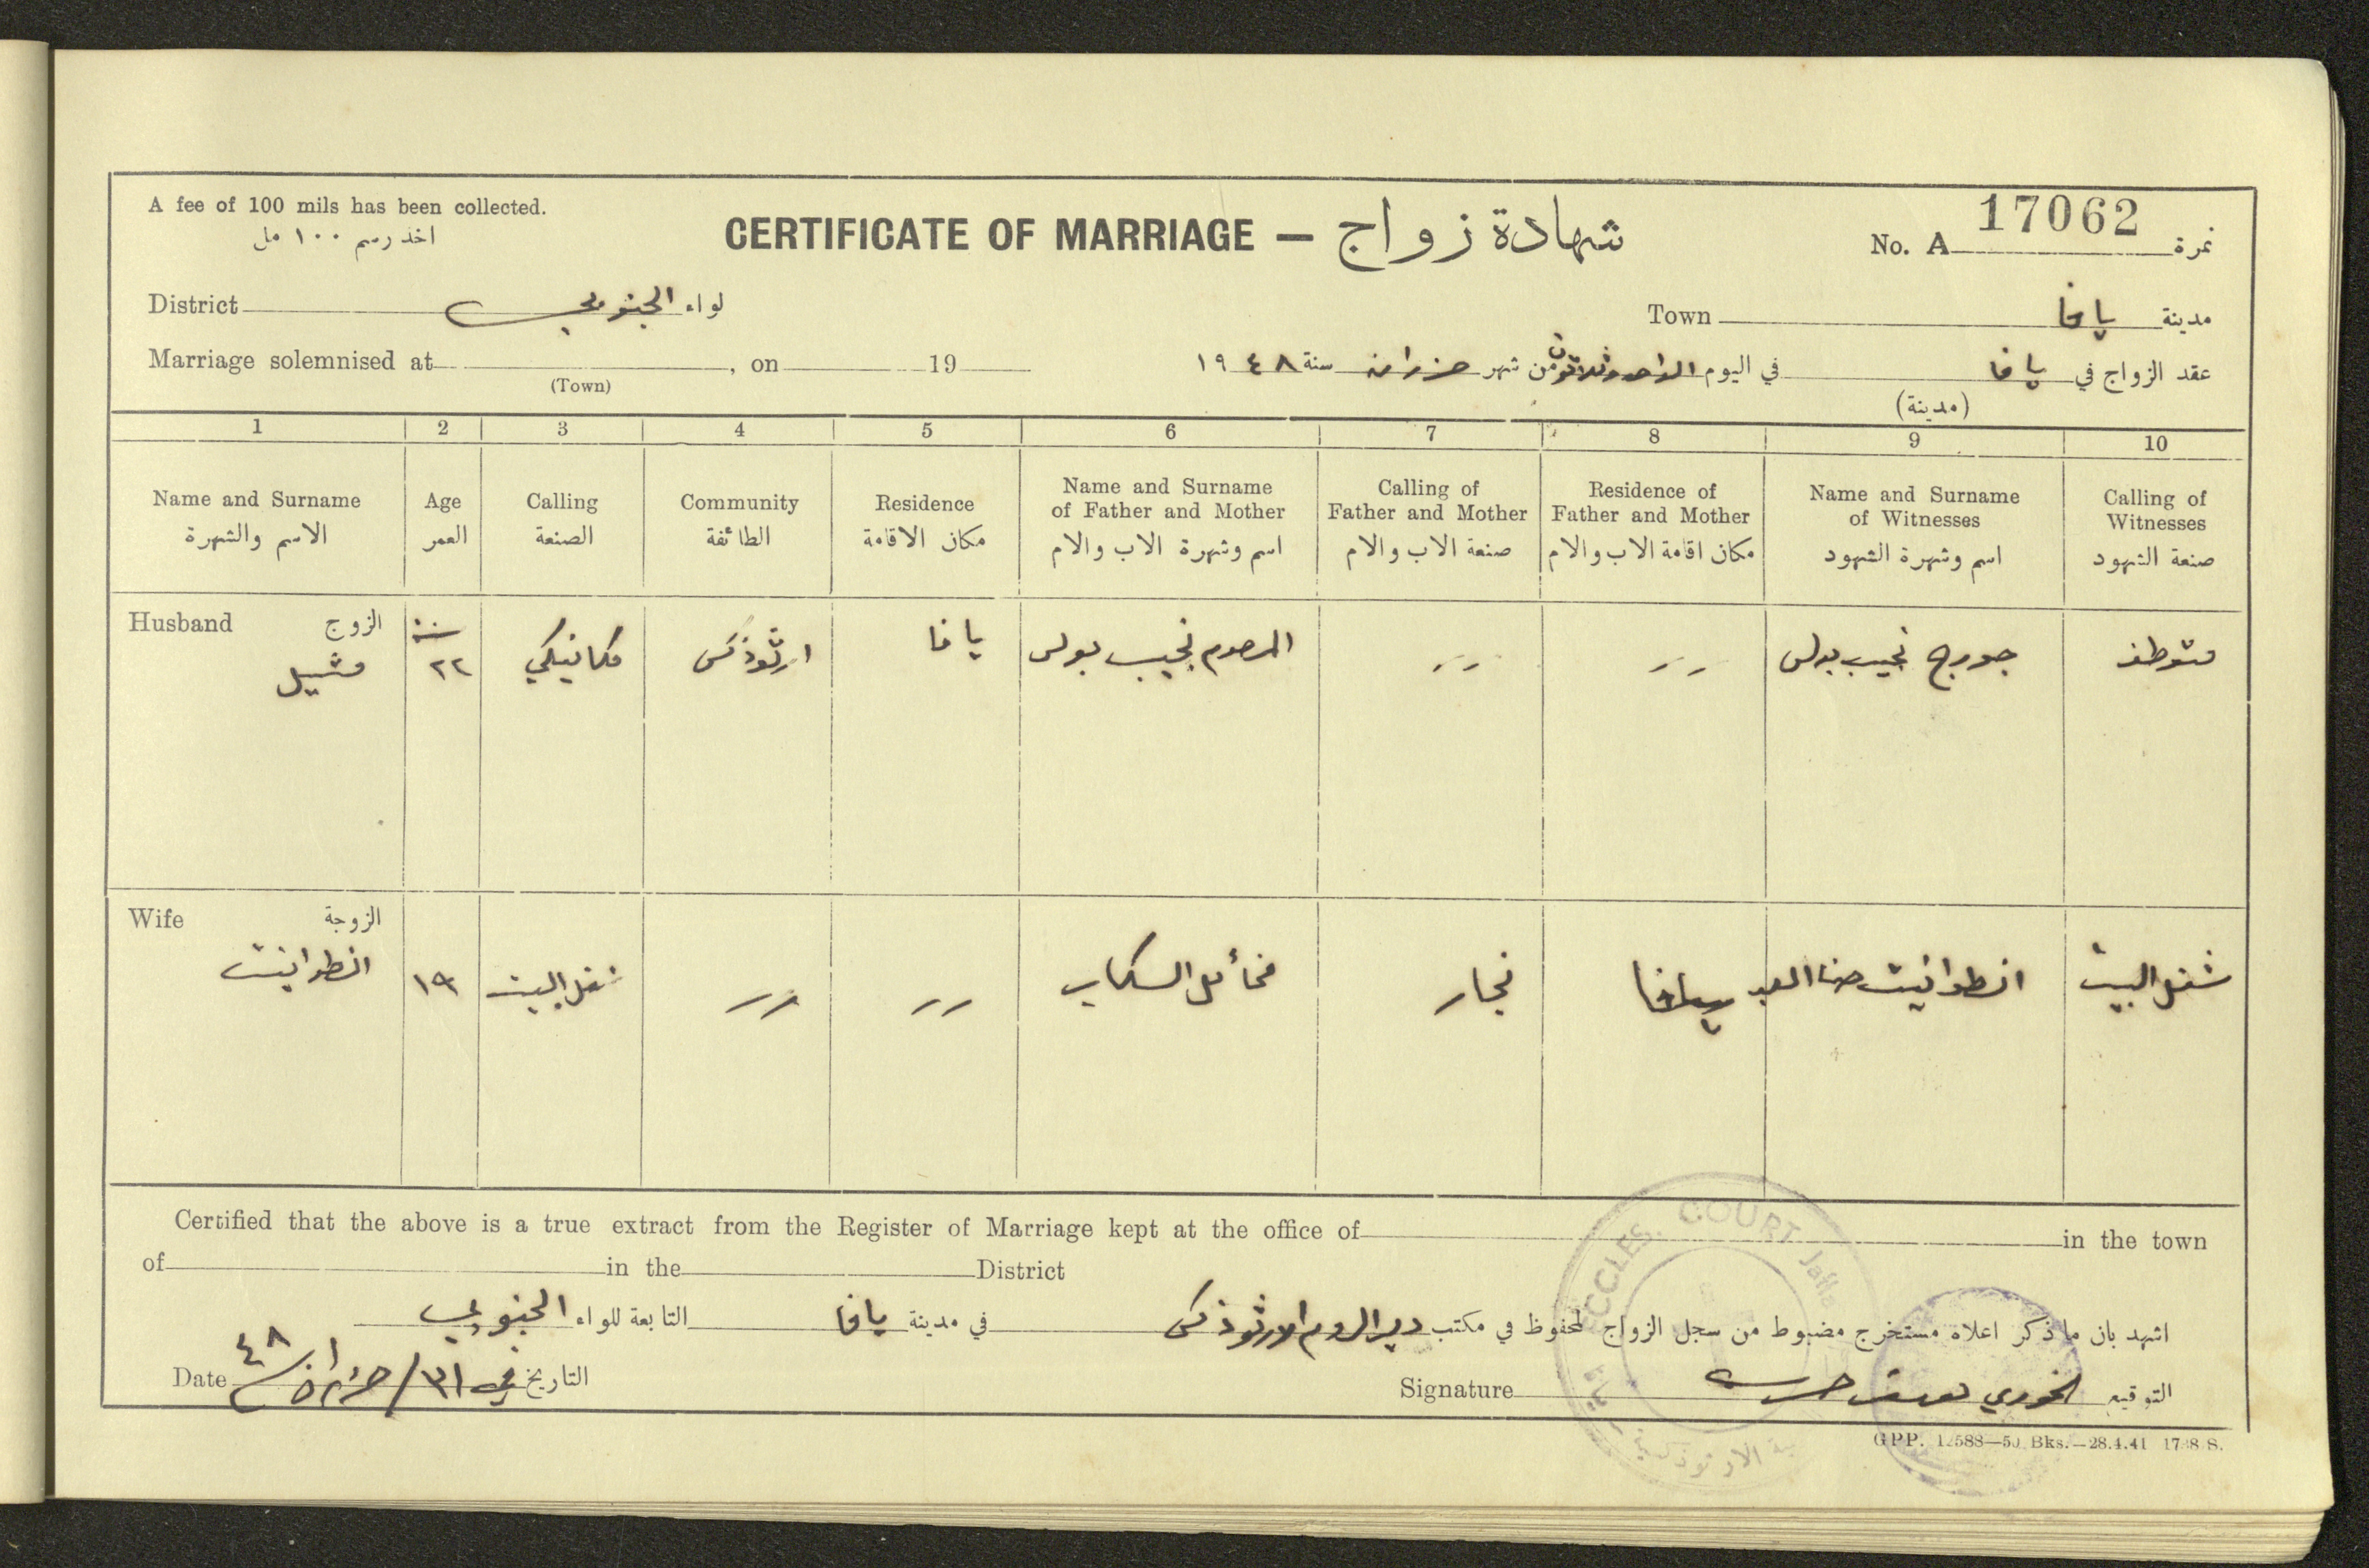 A fee of 100 mils has been collected.
اخذ رسم ١٠٠ مل
CERTIFICATE OF MARRIAGE — شهادة زواج
No. A 17062 نمرة
District الجنوبي لواء
Town يافا مدينة
Marriage solemnised at , on 19
(Town)
عقد الزواج في يافا في اليوم الواحد وثلاثون من شهر حزيران سنة ١٩٤٨
(مدينة)
1 2 3 4 5 6 7 8 9 10
Name and Surname
الاسم والشهرة
Age
العمر
Calling
الصنعة
Community
الطائفة
Residence
مكان الاقامة
Name and Surname
of Father and Mother
اسم وشهرة الاب والام
Calling of
Father and Mother
صنعة الاب والام
Residence of
Father and Mother
مكان اقامة الاب والام
Name and Surname
of Witnesses
اسم وشهرة الشهود
Calling of
Witnesses
صنعة الشهود
Husband الزوج
مشيل
سنة
٢٢
مكانيكي
ارثوذكس
يافا
المرحوم نجيب بولس
〃
〃
جورج نجيب بولس
متوظف
Wife الزوجة
انطوانيت
١٩
شغل البيت
〃
〃
نجار
يافا
انطوانيت حنا العبد
شغل البيت
Certified that the above is a true extract from the Register of Marriage kept at the office of in the town
of in the District
اشهد بان ما ذكر اعلاه مستخرج مضبوط من سجل الزواج المحفوظ في مكتب دير الروم الارثوذكس في مدينة يافا التابعة للواء الجنوبي
Date التاريخ في ٣١/حزيران/٤٨
Signature الخوري يوسف التوقيع
ECCLES. COURT Jaffa
GPP. 12588—50 Bks.—28.4.41